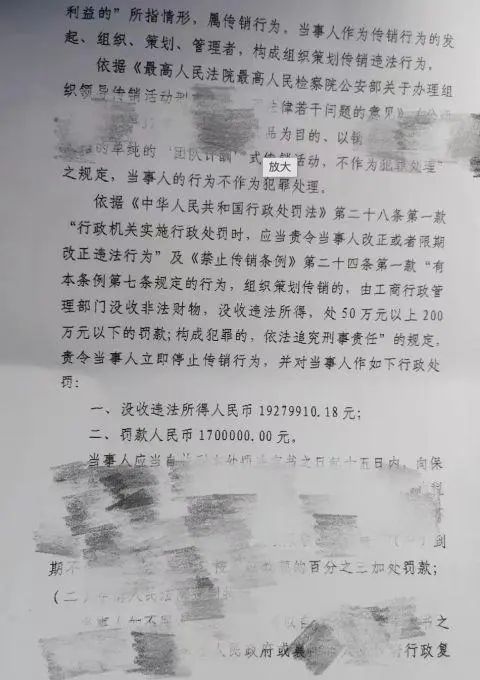 利益的”所指情形，属传销行为。当事人作为传销行为的发
起、组织、策划、管理者，构成组织策划传销违法行为。
依据《最高人民法院最高人民检察院公安部关于办理组
织领导传销活动刑 律若干问题的意见》
为目的、以销
的单纯的‘团队计酬’式传销活动，不作为犯罪处理”
放大
之规定，当事人的行为不作为犯罪处理。
依据《中华人民共和国行政处罚法》第二十八条第一款
“行政机关实施行政处罚时，应当责令当事人改正或者限期
改正违法行为”及《禁止传销条例》第二十四条第一款“有
本条例第七条规定的行为，组织策划传销的，由工商行政管
理部门没收非法财物，没收违法所得，处50万元以上200
万元以下的罚款；构成犯罪的，依法追究刑事责任”的规定，
责令当事人立即停止传销行为，并对当事人作如下行政处
罚：
一、没收违法所得人民币19279910.18元；
二、罚款人民币1700000.00元。
当事人应当自 处罚 书之日起十五日内，向保
到
期不 的百分之三加处罚款；
（二） 人民法院
书之
人民政府或 行政复